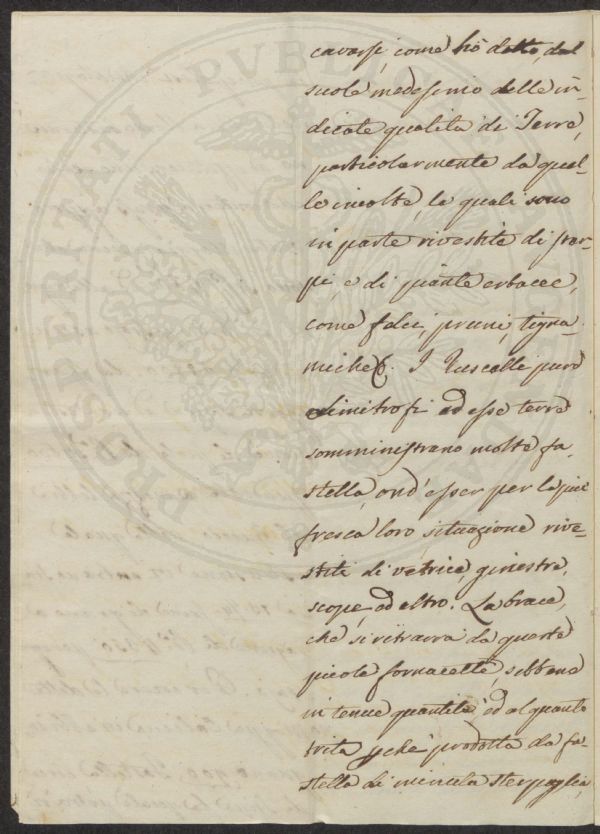 PROSPERITATI PUBLICAE
cavarsi, come hò detto, dal
suolo medesimo delle in-
dicate qualità di Terre,
particolarmente da quel-
le incolte, le quali sono
in parte rivestite di star-
pi, e di piante erbacee,
come felci, pruni, tigna-
miche &. I Ruscelli pure
limitrofi ad esse terre
somministrano molte fa-
stella, ond'esser per la più
fresca loro situazione rive-
stiti di vetrice, ginestre,
scope, ed altro. La brace,
che si ritrarrà da queste
picole fornacette, sebbene
in tenue quantità, ed alquanto
trita, perche prodotta da fa-
stella di minuta sterpaglia,